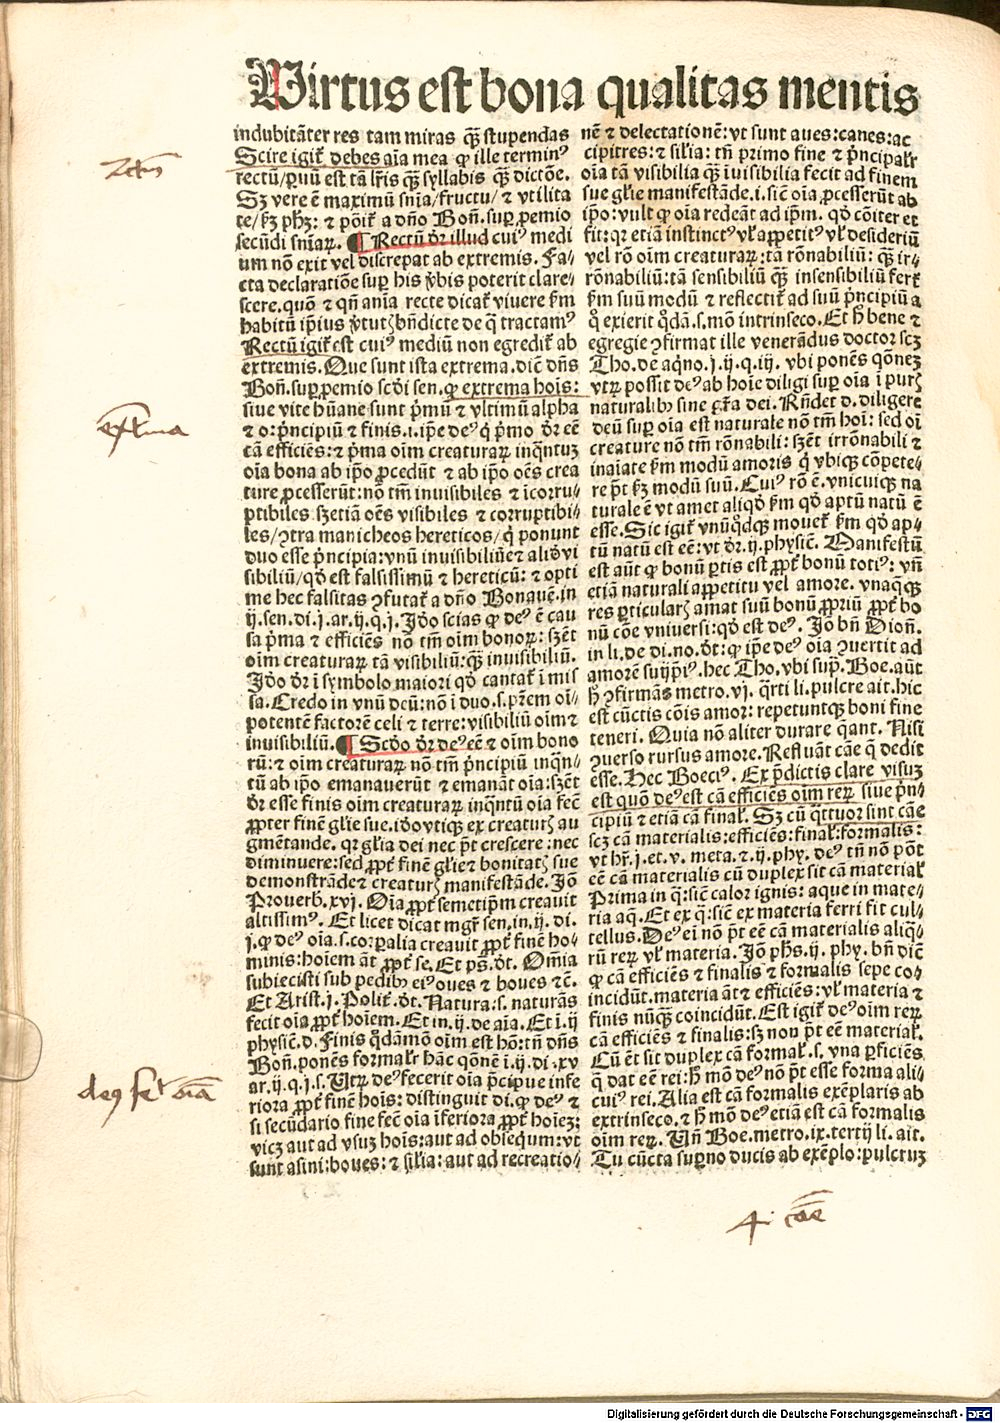 Virtus est bona qualitas mentis
indubitāter res tam miras q̄ȝ stupendas
Scire igit᷑ debes aīa mea ꝙ ille terminꝰ
rectū/paruū est tā lr̄is q̄ȝ syllabis q̄ȝ dictōe.
Sȝ vere ē maximū sn̄ia/fructu/⁊ vtilita
te/ẜm ph̄m: ⁊ pōit᷑ a dño Boñ. suꝑ ꝓemio
secūdi sn̄iaꝝ. ¶ Rectū dr̄ illud cuiꝰ medi
um nō exit vel discrepat ab extremis. Fa⸗
cta declaratiōe suꝑ his v̓bis poterit clare⸗
scere. quō ⁊ qn̄ anīa recte dicat᷑ viuere ẜm
habitū ip̄ius v̓tutȝ bn̄dicte de q̄ tractamꝰ
Rectū igit᷑ est cuiꝰ mediū non egredit᷑ ab
extremis. Que sunt ista extrema. dicē dn̄s
Boñ. suꝑ ꝓemio scd̓i sen. ꝙ extrema hoīs:
siue vite hūane sunt p̄mū ⁊ vltimū alpha
⁊ o: p̄ncipiū ⁊ finis. i. ip̄e deꝰ q̇ p̄mo dr̄ eē
cā efficiēs: ⁊ p̄ma oīm creaturaꝝ inq̄ntuȝ
oīa bona ab ip̄o ꝓcedūt ⁊ ab ip̄o oēs crea
ture ꝓcesserūt: nō tm̄ inuisibiles ⁊ īcorru⸗
ptibiles sȝ etiā oēs visibiles ⁊ corruptibi⸗
les/ ꝯtra manicheos hereticos/ q̇ ponunt
duo esse p̄ncipia: vnū inuisibiliū ⁊ aliō vi
sibiliū/ qd̓ est falsissimū ⁊ hereticū: ⁊ opti
me hec falsitas ꝯfutat᷑ a dño Bonauē. in
ij. sen. di. j. ar. ij. q. j. Idō scias ꝙ deꝰ ē cau
sa p̄ma ⁊ efficiēs nō tm̄ oīm bonoꝝ: sȝ ēt
oīm creaturaꝝ tā visibiliū: q̄ȝ inuisibiliū.
Idō dr̄ ī symbolo maiori qd̓ cantat᷑ ī mis
sa. Credo in vnū deū: nō ī duo. s. pr̄em oī⸗
potentē factorē celi ⁊ terre: visibiliū oīm ⁊
inuisibiliū. ¶ Scd̓o dr̄ deꝰ eē ⁊ oīm bono
rū: ⁊ oīm creaturaꝝ nō tm̄ p̄ncipiū inq̄n⸗
tū ab ip̄o emanauerūt ⁊ emanāt oīa: sȝ ēt
dr̄ esse finis oīm creaturaꝝ inq̄ntū oīa fecē
ꝓpter finē gl̓ie sue. idō vtiqȝ ex creaturȝ au
gmētande. qꝛ gl̓ia dei nec pōt crescere: nec
diminuere: sed ꝓpt̓ finē gl̓ie ⁊ bonitatȝ sue
demonstrāde ⁊ creaturȝ manifestāde. Iō
Prouerb. xvj. Oīa ꝓpt̓ semetip̄m creauit
altissimꝰ. Et licet dicat mgr̄ sen. in. ij. di.
j. ꝙ deꝰ oīa. s. corꝑalia creauit ꝓpt̓ finē ho⸗
minis: hoīem āt ꝓpt̓ se. Et ps̄. dt̄. Om̄ia
subiecisti sub pedibꝰ eiꝰ oues ⁊ boues ⁊c̄.
Et Arist. j. Polit̓. dt̄. Natura. s. naturās
fecit oīa ꝓpt̓ hoīem. Et in. ij. de aīa. Et ī. ij
physic̄. d. Finis q̇dāmō oīm est hō: tn̄ dn̄s
Boñ. ponēs formal̓r hāc q̄onē ī. ij. di. xv
ar. ij. q. j. s. Vtꝝ deꝰ fecerit oīa p̄cipue infe
riora ꝓpt̓ finē hoīs: distinguit di. ꝙ deꝰ ⁊
si secūdario fine fecē oīa īferiora ꝓpt̓ hoīeȝ:
vicȝ aut ad vsuȝ hoīs: aut ad obsequm: vt
sunt asini: boues: ⁊ sīlia: aut ad recreatio⸗
nē ⁊ delectationē: vt sunt aues: canes: ac
cipitres: ⁊ sīlia: tn̄ primo fine ⁊ p̄ncipal̓r
oīa tā visibilia q̄ȝ īuisibilia fecit ad finem
sue gl̓ie manifestāde. i. sic̄ oīa ꝓcesserūt ab
ip̄o: vult ꝙ oīa redeāt ad ip̄m. qd̓ cōiter et
fit: qꝛ etiā instinctꝰ vl̓ appetitꝰ vl̓ desideriū
vel rō oīm creaturaꝝ: tā rōnabiliū: q̄ȝ ir⸗
rōnabiliū: tā sensibiliū q̄ȝ insensibiliū fert᷑
ẜm suū modū ⁊ reflectit᷑ ad suū p̄ncipiū a
q̊ exierit q̊dā. s. mō intrinseco. Et h̄ bene ⁊
egregie ꝯfirmat ille venerādus doctor scȝ
Tho. de aq̇no. j. ij. q. iij. vbi ponēs q̄oneȝ
vtꝝ possit deꝰ ab hoīe diligi suꝑ oīa ī purȝ
naturalibꝰ sine gr̄a dei. Rn̄det d. diligere
deū suꝑ oīa est naturale nō tm̄ hoī: sed oī
creature nō tm̄ rōnabili: sȝ ēt irrōnabili ⁊
inaīate ẜm modū amoris q̇ vbiqȝ cōpete⸗
re pōt ẜm modū suū. Cuiꝰ rō ē. vnicuiqȝ na
turale ē vt amet aliqd̓ ẜm qd̓ aptū natū ē
esse. Sic igit᷑ vnūqd̓qȝ mouet᷑ ẜm qd̓ ap⸗
tū natū est eē: vt dr̄. ij. physic̄. Manifestū
est aūt ꝙ bonū ꝑtis est ꝓpt̓ bonū totiꝰ: vn̄
etiā naturali appetitu vel amore. vnaq̄qȝ
res ꝑticularȝ amat suū bonū ꝓpriū ꝓpt̓ bo
nū cōe vniuersi: qd̓ est deꝰ. Iō bn̄ Dioñ.
in li. de di. no. dt̄: ꝙ ip̄e deꝰ oīa ꝯuertit ad
amorē suijp̄iꝰ. hec Tho. vbi sup̄. Boe. aūt
h̄ ꝯfirmās metro. vj. q̄rti li. pulcre ait. hic
est cūctis cōis amor: repetuntqȝ boni fine
teneri. Quia nō aliter durare q̄ant. Nisi
ꝯuerso rursus amore. Refluāt cāe q̄ dedit
esse. Hec Boeciꝰ. Ex p̄dictis clare visuȝ
est quō deꝰ est cā efficiēs oīm reꝝ siue p̄n⸗
cipiū ⁊ etiā cā final̓. Sȝ cū q̄ttuor sint cāe
scȝ cā materialis: efficiēs: final̓: formalis:
vt hr̄. j. et. v. meta. ⁊. ij. phy. deꝰ tn̄ nō pōt
eē cā materialis cū duplex sit cā material̓
Prima in q̄: sic̄ calor ignis: aque in mate⸗
ria aq̄. Et ex q̄: sic̄ ex materia ferri fit cul⸗
tellus. Deꝰ ei nō pōt eē cā materialis aliq̄⸗
rū reꝝ vl̓ materia. Iō ph̄s. ij. phy. bn̄ dic̄
ꝙ cā efficiēs ⁊ finalis ⁊ formalis sepe co⸗
incidūt. materia āt ⁊ efficiēs: vl̓ materia ⁊
finis nūq̄ȝ coincidūt. Est igit᷑ deꝰ oīm reꝝ
cā efficiēs ⁊ finalis: sȝ non pōt eē material̓.
Cū ēt sit duplex cā formal̓. s. vna ꝑficiēs
q̄ dat eē rei: h̄ mō deꝰ nō pōt esse forma ali⸗
cuiꝰ rei. Alia est cā formalis exēplaris ab
extrinseco. ⁊ h̄ mō deꝰ etiā est cā formalis
oīm reꝝ. Vn̄ Boe. metro. ix. tertij li. ait.
Tu cūcta suꝑno ducis ab exēplo: pulcruȝ
extrema
deꝰ fec̄ oīa
4 cāe
Digitalisierung gefördert durch die Deutsche Forschungsgemeinschaft - DFG